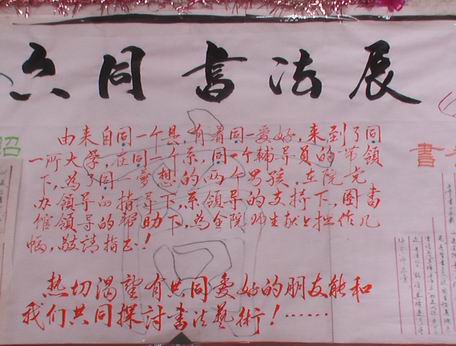 六同書法展
由来自同一个县,有着同一爱好,来到了同
一所大学,在同一个系,同一个辅导员的带领
下,为了同一梦想的两个男孩,在院党
办领导的指导下,系领导的支持下,图書
馆领导的帮助下,为全院师生献上拙作几
幅,敬請指正!
热切渴望有共同爱好的朋友能和
我们共同探討書法藝術!……
書